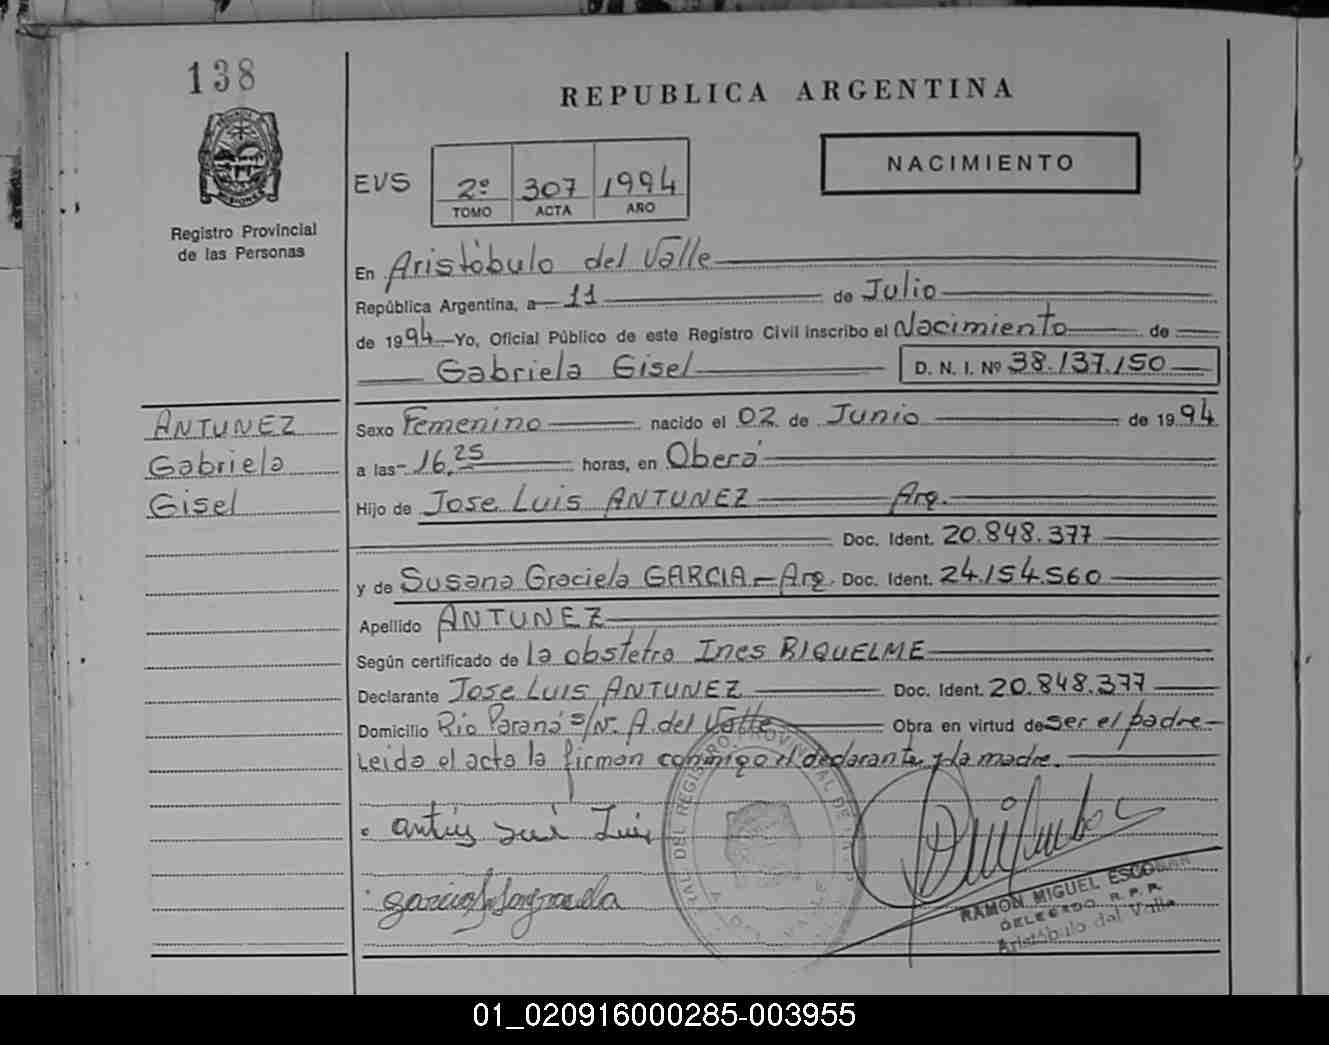 138
REPUBLICA ARGENTINA
NACIMIENTO
EVS 2º 307 1994
TOMO ACTA AÑO
Registro Provincial
de las Personas
En Aristóbulo del Valle
República Argentina, a 11 de Julio
de 1994 Yo, Oficial Público de este Registro Civil inscribo el Nacimiento de
Gabriela Gisel D. N. I. Nº 38.137.150
ANTUNEZ
Gabriela
Gisel
Sexo Femenino nacido el 02 de Junio de 1994
a las 16.25 horas, en Oberá
Hijo de Jose Luis ANTUNEZ Arg.
Doc. Ident. 20.848.377
y de Susana Graciela GARCIA - Arg. Doc. Ident. 24.154.560
Apellido ANTUNEZ
Según certificado de la obstetra Ines RIQUELME
Declarante Jose Luis ANTUNEZ Doc. Ident. 20.848.377
Domicilio Rio Paraná s/Nº. A. del Valle Obra en virtud de ser el padre
Leida el acta la firman conmigo el declarante y la madre.
RAMON MIGUEL ESCOBAR
DELEGADO R. P. P.
Aristóbulo del Valle
01_020916000285-003955